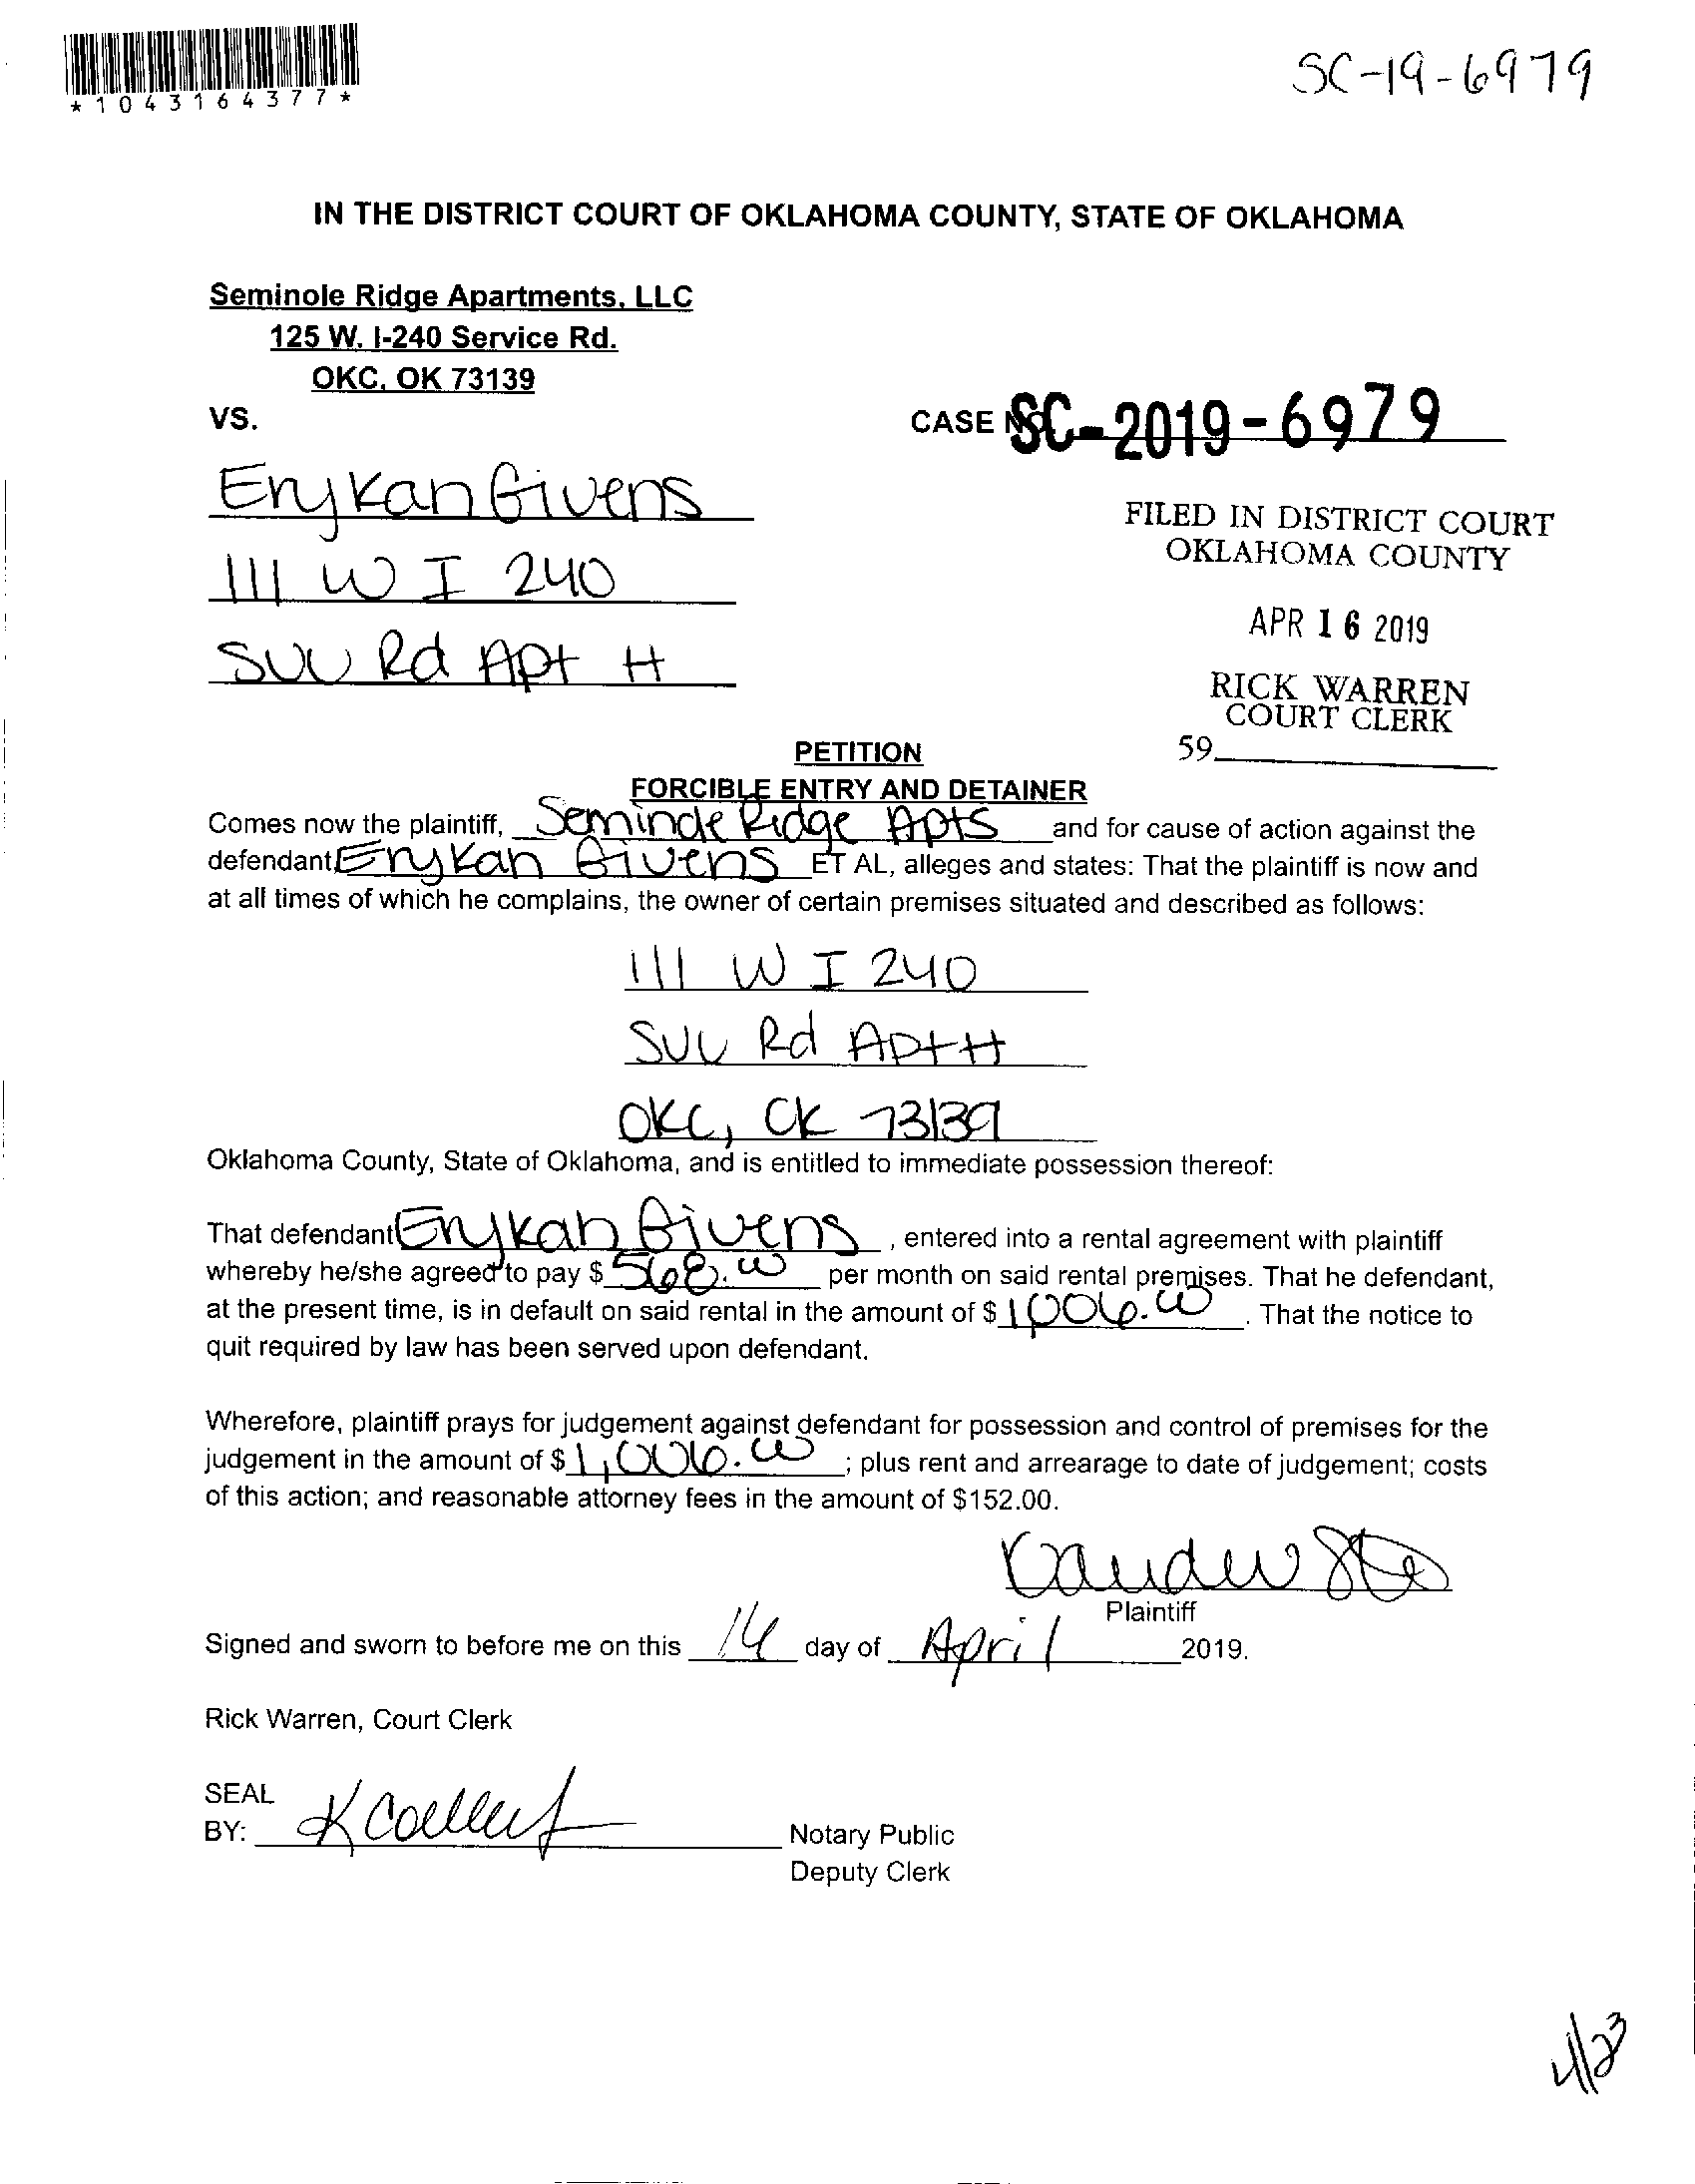 *1043164377*
SC-19-6979
IN THE DISTRICT COURT OF OKLAHOMA COUNTY, STATE OF OKLAHOMA
Seminole Ridge Apartments, LLC
125 W. I-240 Service Rd.
OKC, OK 73139
VS.
CASE NO. SC-2019-6979
Erykan Givens
111 W I 240
SVC Rd Apt H
FILED IN DISTRICT COURT
OKLAHOMA COUNTY
APR 16 2019
RICK WARREN
COURT CLERK
59
PETITION
FORCIBLE ENTRY AND DETAINER
Comes now the plaintiff, Seminole Ridge Apts and for cause of action against the
defendant Erykan Givens ET AL, alleges and states: That the plaintiff is now and
at all times of which he complains, the owner of certain premises situated and described as follows:
111 W I 240
SVC Rd Apt H
OKC, OK 73139
Oklahoma County, State of Oklahoma, and is entitled to immediate possession thereof:
That defendant Erykan Givens, entered into a rental agreement with plaintiff
whereby he/she agreed to pay $ 568.00 per month on said rental premises. That he defendant,
at the present time, is in default on said rental in the amount of $ 1,006.00. That the notice to
quit required by law has been served upon defendant.
Wherefore, plaintiff prays for judgement against defendant for possession and control of premises for the
judgement in the amount of $ 1,006.00; plus rent and arrearage to date of judgement; costs
of this action; and reasonable attorney fees in the amount of $152.00.
Plaintiff
Signed and sworn to before me on this 14 day of April 2019.
Rick Warren, Court Clerk
SEAL
BY:
Notary Public
Deputy Clerk
4/23